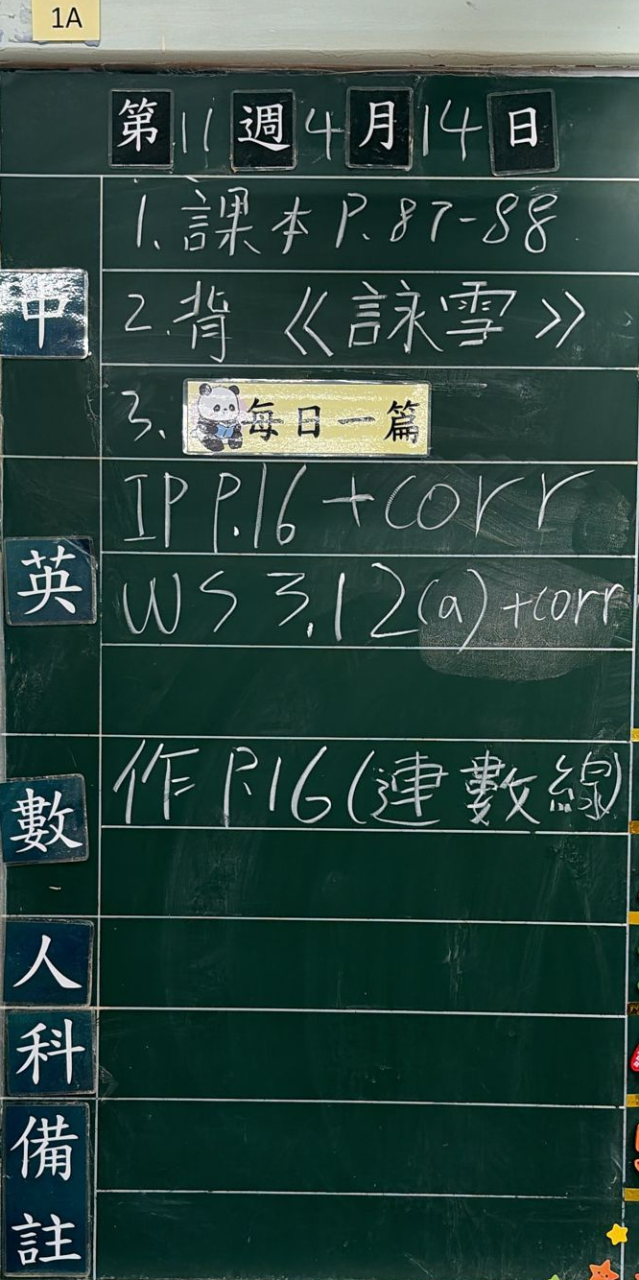 1A
第11週4月14日
中
1. 課本 P. 87-88
2. 背 《詠雪》
3. 每日一篇
英
IP P.16 + corr
WS 3.12(a) + corr
數
作 P.16 (連數線)
人
科
備
註